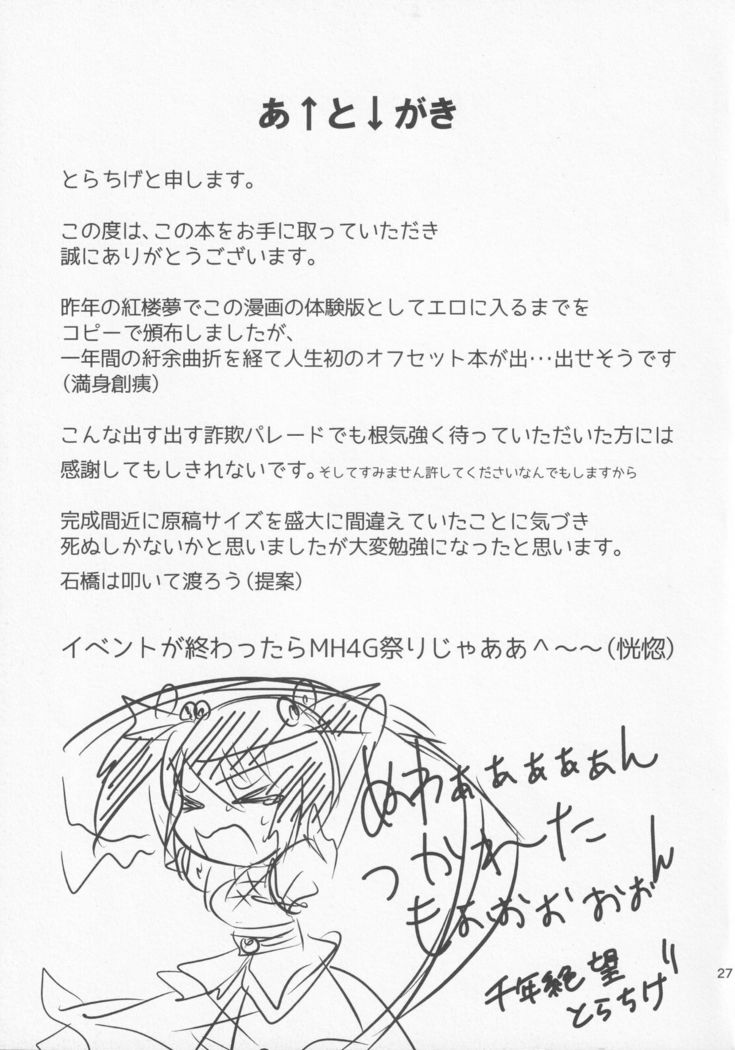 あ↑と↓がき
とらちげと申します。
この度は、この本をお手に取っていただき
誠にありがとうございます。
昨年の紅楼夢でこの漫画の体験版としてエロに入るまでを
コピーで頒布しましたが、
一年間の紆余曲折を経て人生初のオフセット本が出･･･出せそうです
（満身創痍）
こんな出す出す詐欺パレードでも根気強く待っていただいた方には
感謝してもしきれないです。そしてすみません許してくださいなんでもしますから
完成間近に原稿サイズを盛大に間違えていたことに気づき
死ぬしかないかと思いましたが大変勉強になったと思います。
石橋は叩いて渡ろう（提案）
イベントが終わったらMH4G祭りじゃああ^～～（恍惚）
ぬわぁぁぁぁぁん
つかれた
もぉおおおおん
千年絶望
とらちげ
27